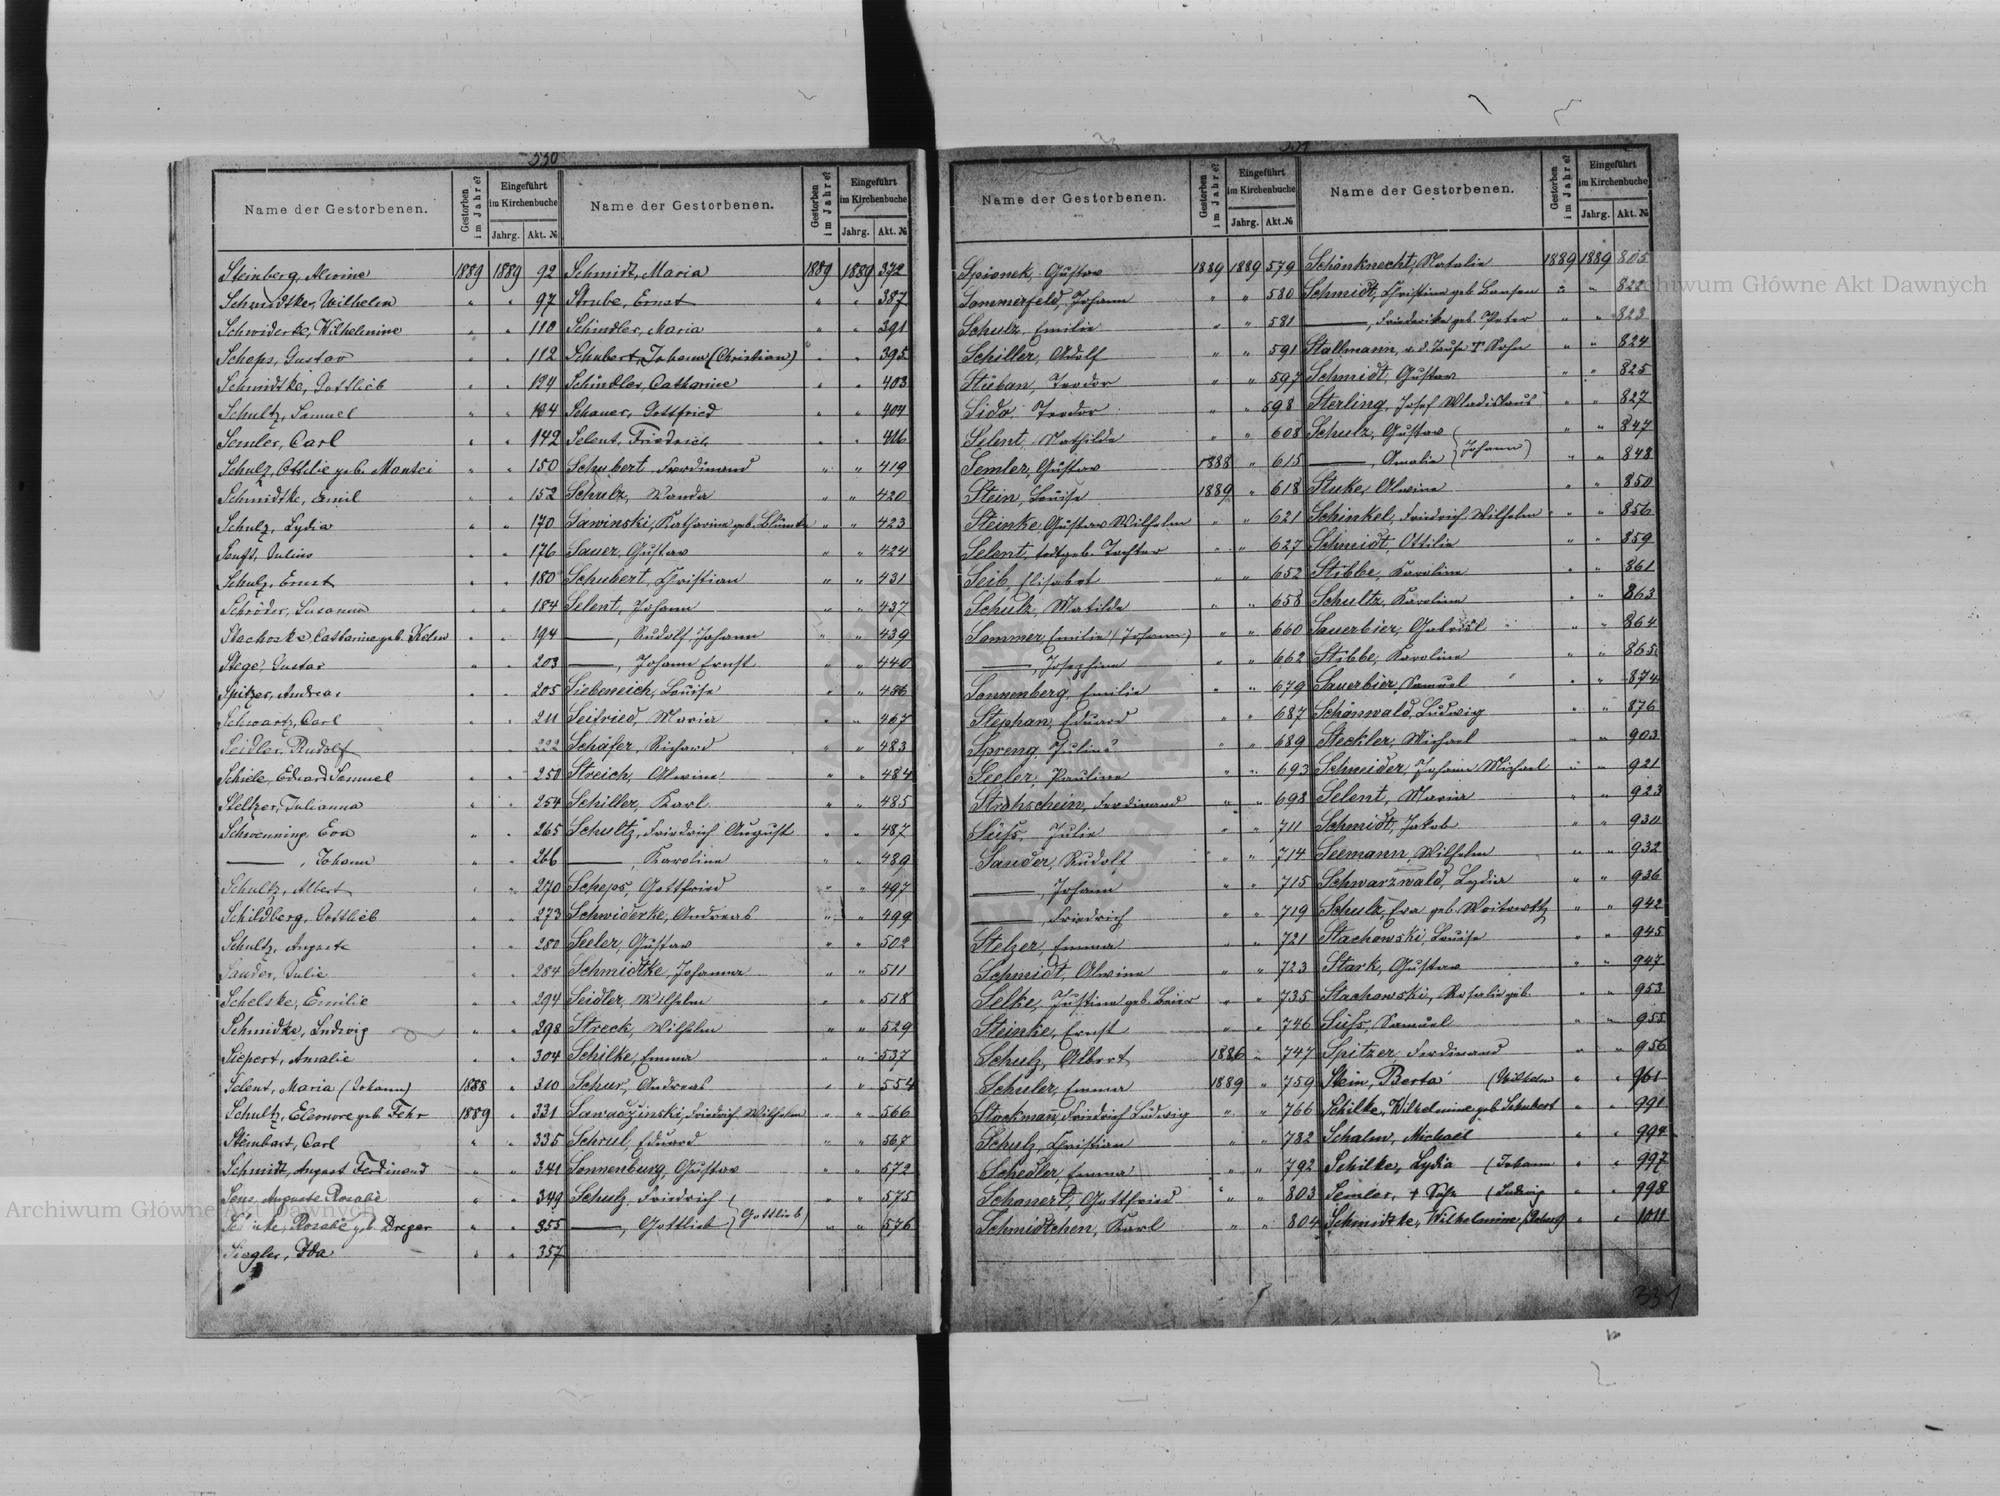 330
Name der Gestorbenen. Gestorben im Jahre? Eingeführt im Kirchenbuche Jahrg. Akt. №
Steinberg, Alwine 1889 1889 92
Schmidtke, Wilhelm " " 97
Schwiderke, Wilhelmine " " 110
Scheps, Gustav " " 112
Schmidtke, Gottlieb " " 124
Schultz, Samuel " " 134
Semler, Carl " " 142
Schulz, Ottilie geb. Mantei " " 150
Schmidtke, Emil " " 152
Schulz, Lydia " " 170
Senft, Julius " " 176
Schulz, Ernst " " 180
Schröder, Susanna " " 184
Stachoske Catharine geb. Kelm " " 194
Stege, Gustav " " 203
Spitzer, Andreas " " 205
Schwartz, Carl " " 211
Seidler, Rudolf " " 222
Schiele, Eduard Samuel " " 250
Steltzer, Julianna " " 254
Schwenning, Eva " " 265
——, Johann " " 266
Schultz, Albert " " 270
Schildberg, Gottlieb " " 273
Schultz, Auguste " " 280
Sander, Julie " " 284
Schelske, Emilie " " 294
Schmidke, Ludwig " " 298
Siepert, Amalie " " 304
Selent, Maria (Johann) 1888 " 310
Schultz, Eleonore geb. Fehr 1889 " 331
Steinbart, Carl " " 335
Schmidt, August Ferdinand " " 341
Auguste Rosalie " " 349
Rosalie geb. Dreger " " 355
Siegler, Ida " " 357
Name der Gestorbenen. Gestorben im Jahre? Eingeführt im Kirchenbuche Jahrg. Akt. №
Schmidt, Maria 1889 1889 372
Strube, Ernst " " 387
Schindler, Maria " " 391
Schubert, Johann (Christian) " " 395
Schindler, Catharine " " 403
Schauer, Gottfried " " 404
Selent, Friedrich " " 416
Schubert Ferdinand " " 419
Schulz, Wanda " " 420
Sawinski, Katharine geb. " " 423
Sauer, Gustav " " 424
Schubert, Christian " " 431
Selent, Johann " " 437
——, Rudolf Johann " " 439
——, Johann Ernst " " 440
Siebeneich, Louise " " 456
Seifried, Maria " " 467
Schäfer, Richard " " 483
Streich, Alwine " " 484
Schiller, Karl " " 485
Schultz, Friedrich August " " 487
——, Karoline " " 489
Scheps, Gottfried " " 497
Schwiderke, Andreas " " 499
Seeler, Gustav " " 502
Schmidtke, Johanna " " 511
Seidler, Wilhelm " " 518
Streck, Wilhelm " " 529
Schilke, Emma " " 537
Schur, Andreas " " 554
Sawadzinski, Friedrich Wilhelm " " 566
Schrul, Eduard " " 567
Sonnenburg, Gustav " " 572
Schulz, Friedrich " " 575
——, Gottlieb (Gottlieb) " " 576
Name der Gestorbenen. Gestorben im Jahre? Eingeführt im Kirchenbuche Jahrg. Akt. №
Spionek, Gustav 1889 1889 579
Sommerfeld, Johann " " 580
Schulz, Emilie " " 581
Schiller, Adolf " " 591
Stüban, Teodor " " 597
Sido, Teodor " " 598
Selent, Mathilde " " 608
Semler, Gustav 1888 " 615
Stein, Louise 1889 " 618
Steinke, Gustav Wilhelm " " 621
Selent, todtgeb. Tochter " " 627
Seib, Elisabet " " 652
Schulz, Matilde " " 658
Sommer, Emilie (Johann) " " 660
——, Josephine " " 662
Sonnenberg, Emilie " " 679
Stephan, Eduard " " 687
Spreng, Julius " " 689
Seeler, Pauline " " 693
Strohschein, Ferdinand " " 698
Süss, Julie " " 711
Sander, Rudolf " " 714
——, Johann " " 715
——, Friedrich " " 719
Stelzer, Emma " " 721
Schmidt, Alwine " " 723
Selke, Justine geb. Beier " " 735
Steinke, Ernst " " 746
Schulz, Albert 1886 " 747
Schuler, Emma 1889 " 759
Stockmann, Friedrich Ludwig " " 766
Schulz, Christian " " 782
Schedler, Emma " " 792
Schanert, Gottfried " " 803
Schmidtchen, Karl " " 804
Name der Gestorbenen. Gestorben im Jahre? Eingeführt im Kirchenbuche Jahrg. Akt. №
Schönknecht, Natalie 1889 1889 805
Schmidt, Christine geb. " " 822
——, Friederike geb. Peter " " 823
Stallmann, v. d. Taufe † Sohn " " 824
Schmidt, Gustav " " 825
Sterling, Josef Wladislaus " " 827
Schulz, Gustav " " 847
——, Amalie (Johann) " " 848
Stuke, Alwine " " 850
Schinkel, Friedrich Wilhelm " " 856
Schmidt, Ottilie " " 859
Stibbe, Karoline " " 861
Schultz, Karoline " " 863
Sauerbier, Gabriel " " 864
Stibbe, Karoline " " 865
Sauerbier, Samuel " " 874
Schönwald, Ludwig " " 876
Steckler, Michael " " 903
Schneider, Johann Michael " " 921
Selent, Maria " " 923
Schmidt, Jakob " " 930
Seemann, Wilhelm " " 932
Schwarzwald, Lydia " " 936
Schulz, Eva geb. " " 942
Stachowski, Louise " " 945
Stark, Gustav " " 947
Stachowski, Rosalie geb. " " 953
Süss, Samuel " " 955
Spitzer, Ferdinand " " 956
Stein, Berta (Wilhelm " " 961
Schilke, Wilhelmine geb. Schubert " " 991
Schalm, Michael " " 994
Schilke, Lydia (Johann " " 997
Semler, † Sohn (Ludwig " " 998
Schmidtke, Wilhelmine " " 1011
331
Archiwum Główne Akt Dawnych
Archiwum Główne Akt Dawnych